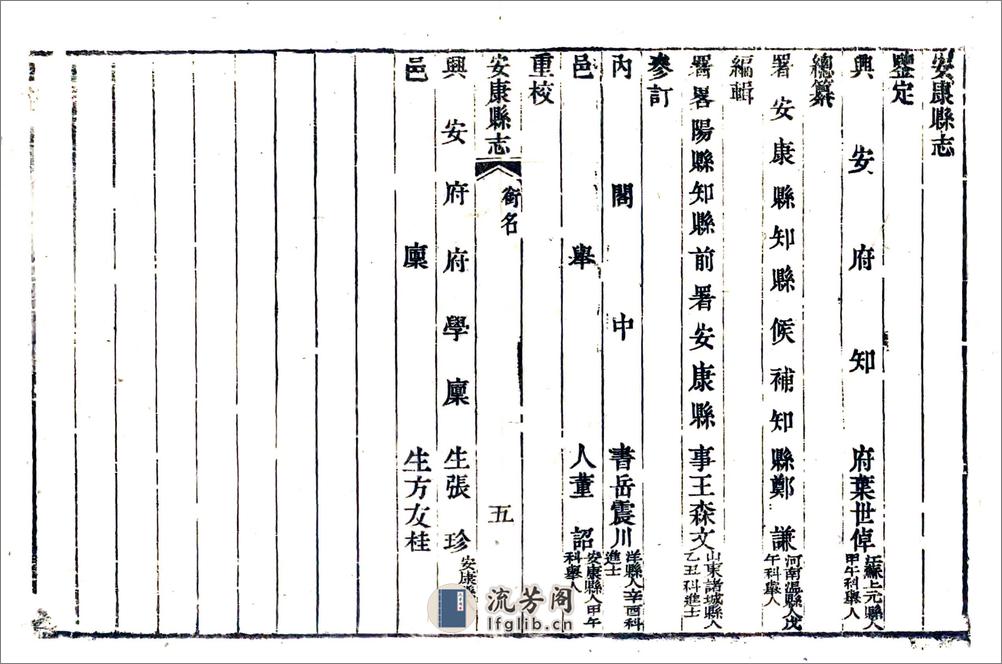 安康縣志
鑒定
興安府知府葉世倬江蘇上元縣人甲午科舉人
總纂
署安康縣知縣候補知縣鄭謙河南溫縣人戊午科舉人
編輯
署畧陽縣知縣前署安康縣事王森文山東諸城縣人乙丑科進士
參訂
內閣中書岳震川洋縣人辛酉科進士
邑舉人董詔安康縣人甲午科舉人
重校
安康縣志 銜名 五
興安府府學廩生張珍安康縣
邑廩生方友桂
流芳阁
lfglib.cn